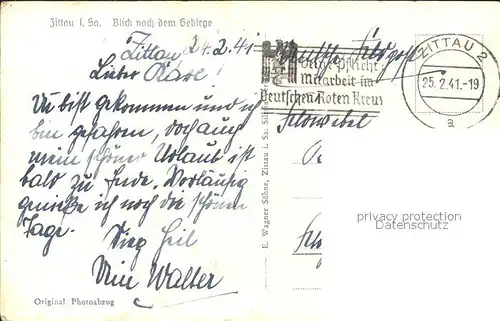 Zittau i. Sa. Blick nach dem Gebirge
Zittau, 24.2.41.
Lieber
Du bist gekommen und ich
bin gefahren, doch auch
mein schöner Urlaub ist
bald zu Ende. Vorläufig
genieße ich noch die schönen
Tage.
Sieg Heil
Dein Walter
Original Photoabzug
E. Wagner Söhne, Zittau i. Sa.
Deutsche Feldpost
Deine Pflicht
Mitarbeit im
Deutschen Roten Kreuz
ZITTAU 2
25.2.41.-19
a
Feldwebel
privacy protection
Datenschutz